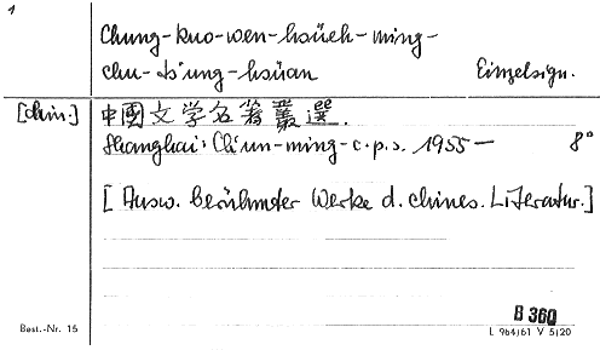 1
Chung-kuo-wen-hsüeh-ming-
chu-ts'ung-hsüan Einzelsign.
[chin.] 中國文学名著叢選.
Shanghai: Ch'un-ming-c.p.s. 1955— 8°
[Ausw. berühmter Werke d. chines. Literatur.]
B 360
Best.-Nr. 15 L 964/61 V 5/20